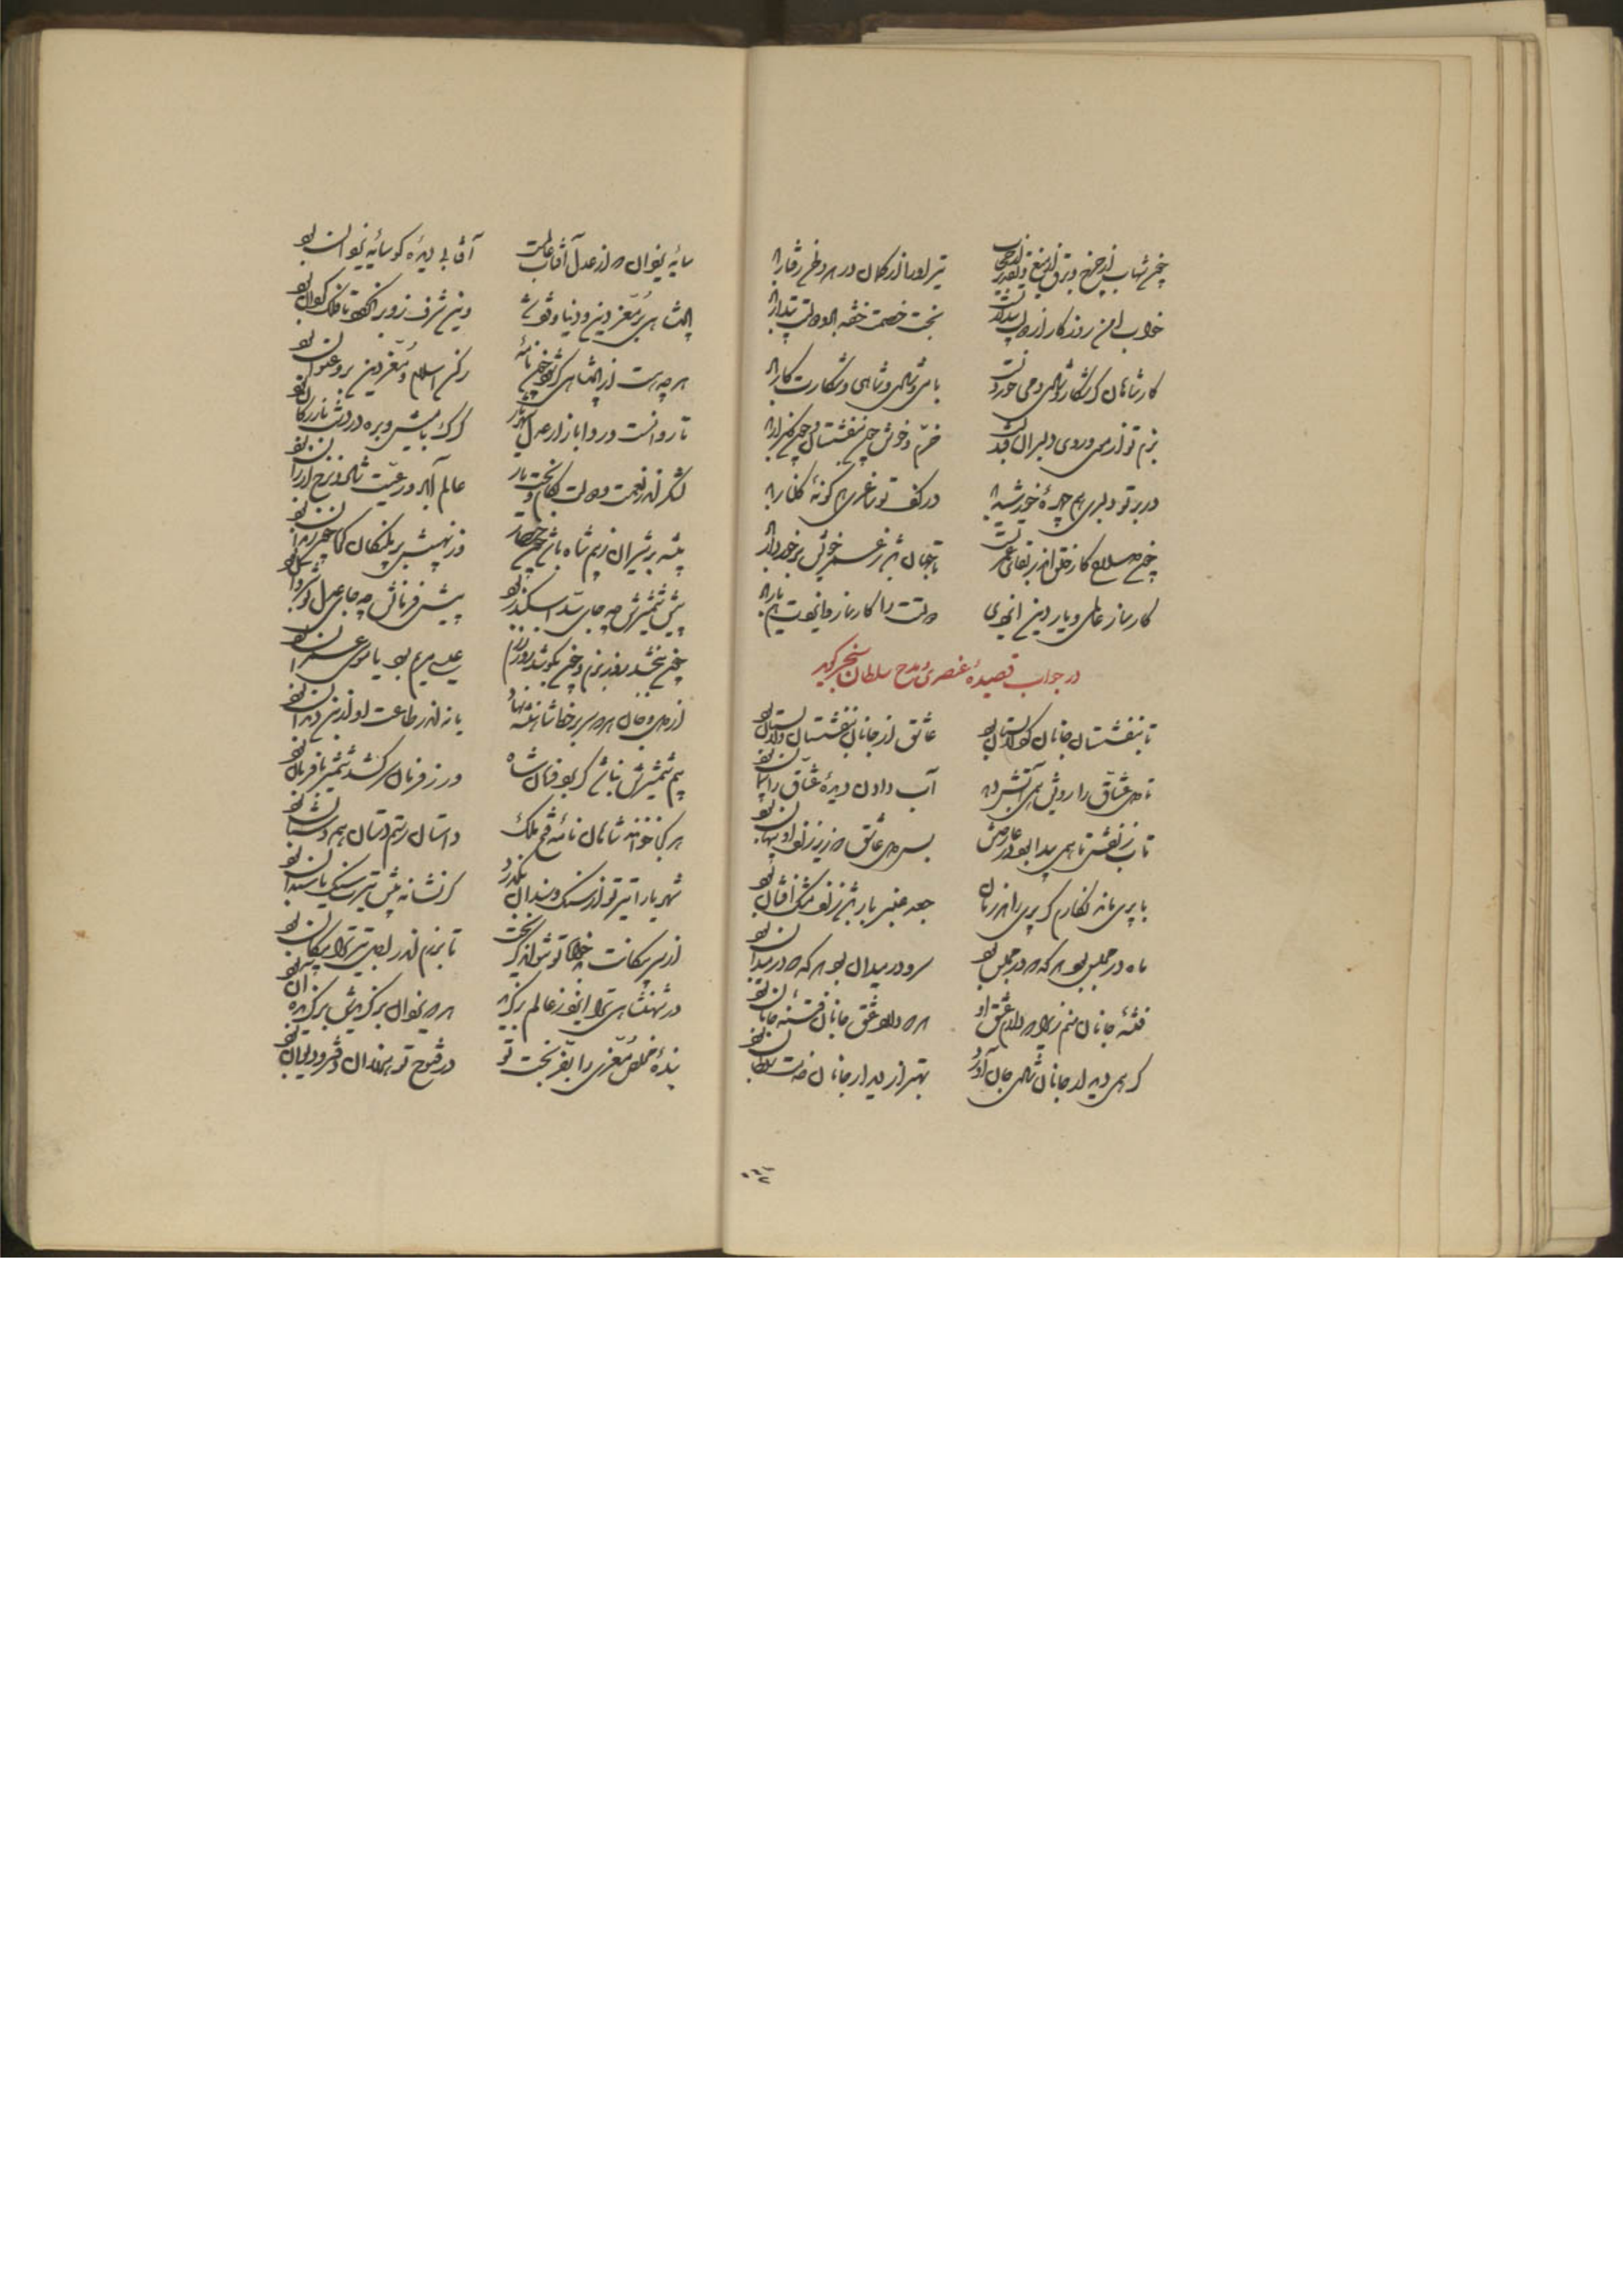 چون شهاب از چرخ و برق از میغ و تقدیر از حجاب تیر او را از کمان در هر دو رخ رفتار باد
خواب امن روزگار از دولت بیدار تست بخت خصمت خفته باد و دولتت بیدار باد
کار شاهان گر شکار و شادی و می خوردنست با می و شادی و شاهی و شکارت کار باد
بزم تو از می و روی دلبران قد خرم و خوش چون بنفشستان و چون گلزار باد
در بر تو دلبری هم چهرهٔ خورشید باد در کف تو ساغری هم گونهٔ گلنار باد
چون صلاح کار خلق اندر بقای عمر تست تا جهان باشد ز عمر خویش برخوردار باد
کارساز عالمی و یار دین ایزدی دولتت را کارساز و ایزدت هم یار باد
در جواب قصیدهٔ عنصری و مدح سلطان سنجر گوید
تا بنفشستان جانان گرد لالستان بود عاشق از جانان بنفشستان و لالستان بود
تا دل عشاق را رویش همی آتش دهد آب دادن دیدهٔ عشاق را پیمان بود
تاب زلفش تا همی پیدا بود در عارضش بس دل عاشق که زیر زلف او پنهان بود
با پری ماند نگارم گر پری را در زمان جعد عنبر بار باشد زلف مشک افشان بود
ماه در مجلس بود هر گه که در مجلس بود سرو در میدان بود هر گه که در میدان بود
فتنهٔ جانان منم زیرا که دارم عشق او هر که دارد عشق جانان فتنهٔ جانان بود
گر همی دیدار جانان شادی جان آورد بهتر از دیدار جانان خدمت سلطان بود
سایهٔ یزدان که از عدل آفتاب عالمست آفتابی دیده‌ای کو سایهٔ یزدان بود
پادشاهی بر معز دین و دنیا وقف شد وین شرف زو بر نگردد تا فلک گردان بود
هر چه هست از پادشاهی گر شود چون نامهٔ رکن اسلام و معز دین برو عنوان بود
تا روانست و روا بازار عدل شهریار گرگ با میش و بره در دشت بازرگان بود
لشکر اندر نعمت و دولت بکام و بخت یار عالم آباد و رعیت شاد و نرخ ارزان بود
پشه بر شیران ز بیم شاه باشد چون حصار وز نهیبش بر پلنگان کام چون زندان بود
پیش شمشیرش چه جای سد اسکندر بود پیش فرمانش چه جای عدل نوشروان بود
چون ببخشد روز بزم و چون بکوشد روز رزم عیسی مریم بود یا موسی عمران بود
از دل و جان هر که سر بر خط شاهنشه نهاد باید اندر طاعت او از بن دندان بود
بیم شمشیرش نباشد گر بود فرمان شاه ور ز فرمان سر کشد شمشیر با فرمان بود
هر کجا خوانند شاهان نامهٔ فتح ملک داستان رستم دستان همه دستان بود
شهریارا تیر تو از سنگ و سندان بگذرد گر نشانه پیش تیرت سنگ یا سندان بود
از سر پیکانت خالی تو شود از گر بخت تا برزم اندر اجل تیر ترا پیکان بود
در شهنشاهی ترا ایزد ز عالم برگزید هر که یزدان برگزیدش برگزیده آن بود
بندهٔ مخلص معزی را بفر بخت تو در فتوح تو چندان دفتر و دیوان بود